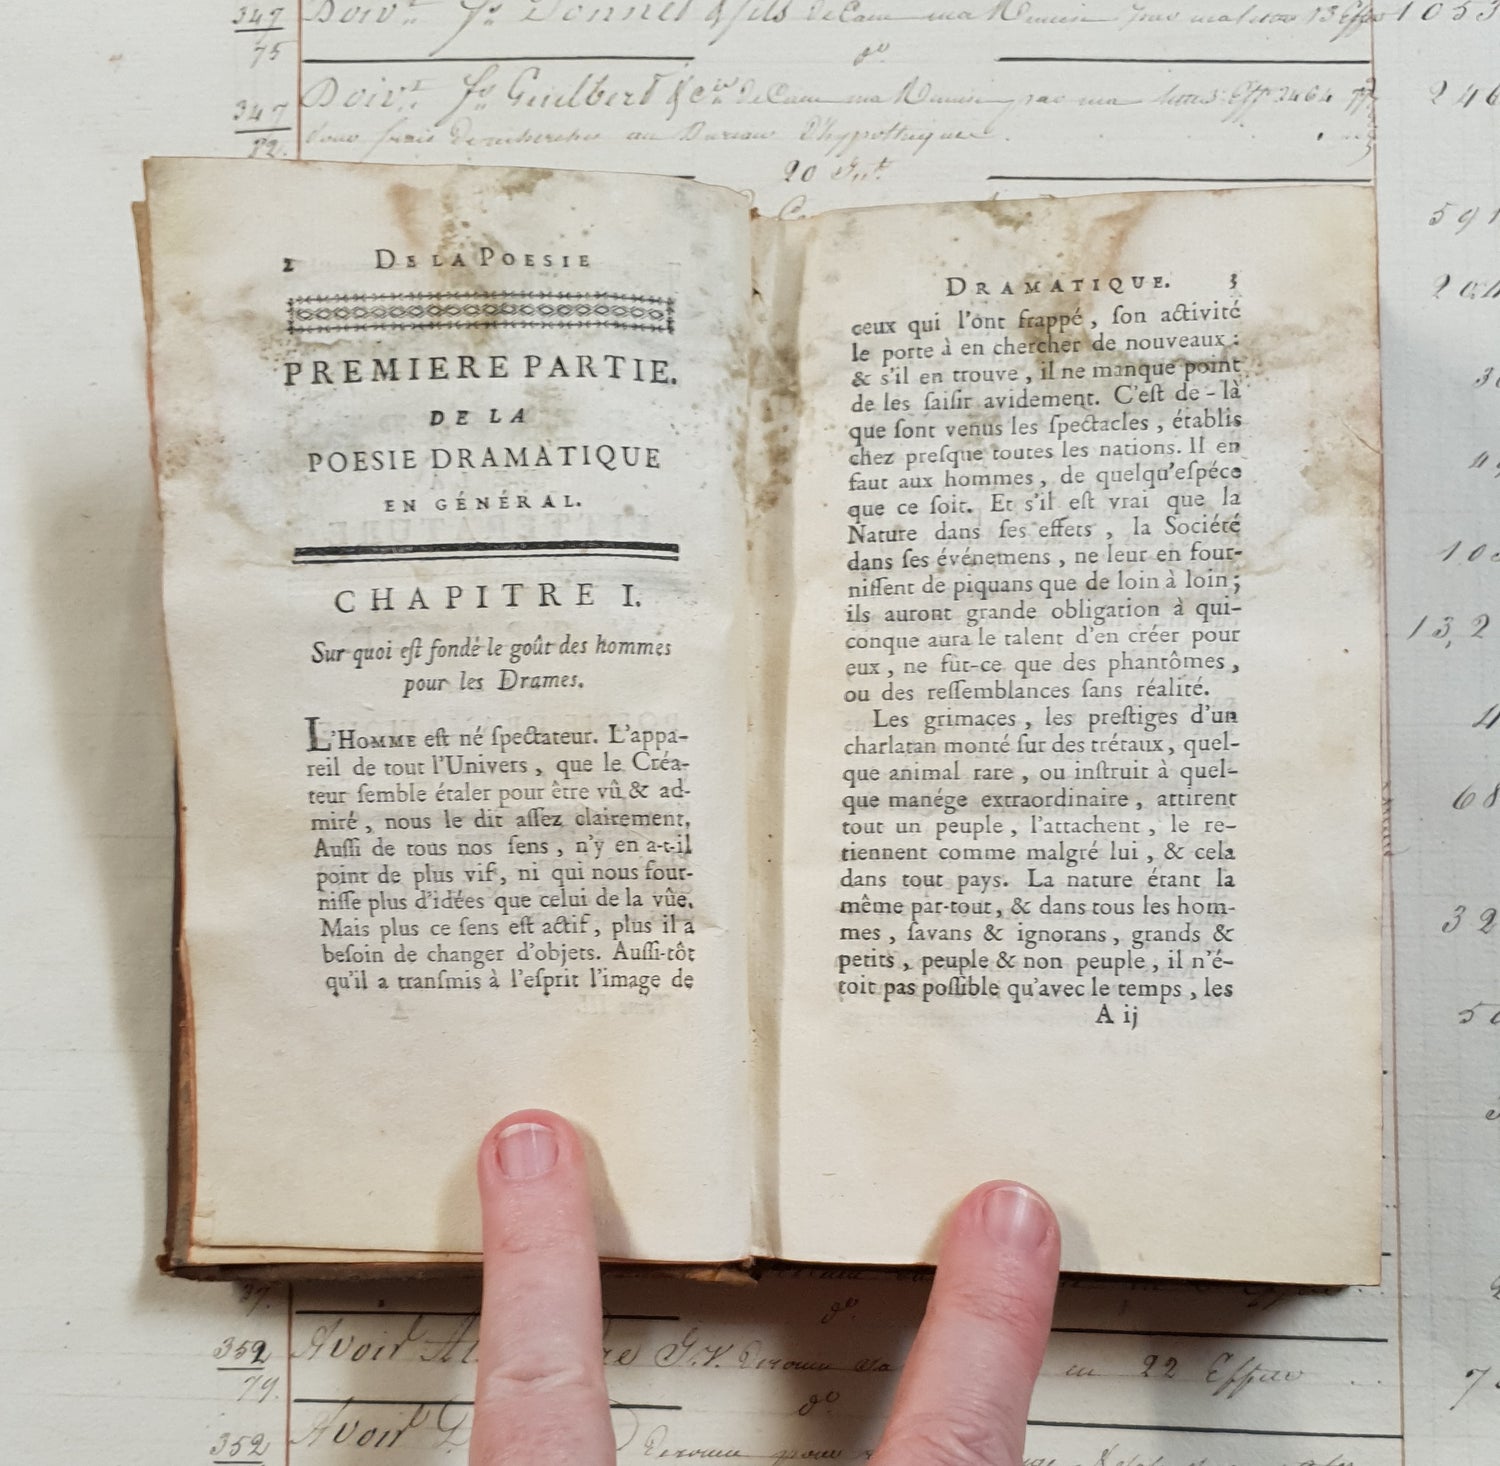 347
75
Doiv.t
& fils de Caen ma Remise
1053
d.o
347
82.
Doiv.t Guilbert & C.ie de Caen ma Remise par ma
246
pour frais de recherches au Bureau d'hypothèques
20
2 DE LA POESIE
PREMIERE PARTIE.
DE LA
POESIE DRAMATIQUE
EN GÉNÉRAL.
CHAPITRE I.
Sur quoi eſt fondé le goût des hommes
pour les Drames.
L'HOMME eſt né ſpectateur. L'appa-
reil de tout l'Univers, que le Créa-
teur ſemble étaler pour être vû & ad-
miré, nous le dit aſſez clairement.
Auſſi de tous nos ſens, n'y en a-t-il
point de plus vif, ni qui nous four-
niſſe plus d'idées que celui de la vûe.
Mais plus ce ſens eſt actif, plus il a
beſoin de changer d'objets. Auſſi-tôt
qu'il a tranſmis à l'eſprit l'image de
DRAMATIQUE. 3
ceux qui l'ont frappé, ſon activité
le porte à en chercher de nouveaux :
& s'il en trouve, il ne manque point
de les ſaiſir avidement. C'eſt de-là
que ſont venus les ſpectacles, établis
chez preſque toutes les nations. Il en
faut aux hommes, de quelqu'eſpéce
que ce ſoit. Et s'il eſt vrai que la
Nature dans ſes effets, la Société
dans ſes événemens, ne leur en four-
niſſent de piquans que de loin à loin;
ils auront grande obligation à qui-
conque aura le talent d'en créer pour
eux, ne fût-ce que des phantômes,
ou des reſſemblances ſans réalité.
Les grimaces, les preſtiges d'un
charlatan monté ſur des trétaux, quel-
que animal rare, ou inſtruit à quel-
que manége extraordinaire, attirent
tout un peuple, l'attachent, le re-
tiennent comme malgré lui, & cela
dans tout pays. La nature étant la
même par-tout, & dans tous les hom-
mes, ſavans & ignorans, grands &
petits, peuple & non peuple, il n'é-
toit pas poſſible qu'avec le temps, les
A ij
37.
d.o
352
79.
Avoir
22 Effets
d.o
352
Avoir